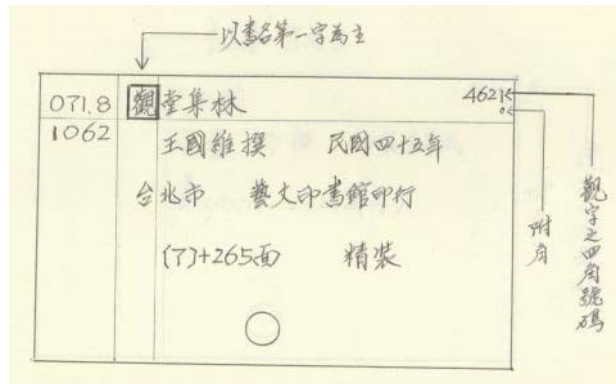 以書名第一字為主
071.8 觀堂集林 4621
0
1062 王國維撰 民國四十五年
台北市 藝文印書館印行
(7)+265面 精裝
附角
觀字之四角號碼